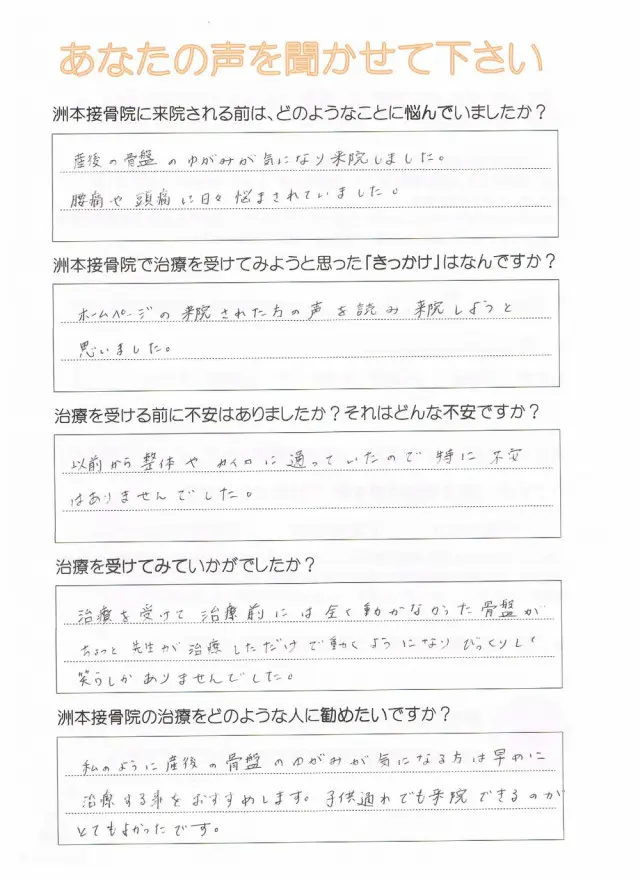 あなたの声を聞かせて下さい
洲本接骨院に来院される前は、どのようなことに悩んでいましたか？
産後の骨盤のゆがみが気になり来院しました。
腰痛や頭痛に日々悩まされていました。
洲本接骨院で治療を受けてみようと思った「きっかけ」はなんですか？
ホームページの来院された方の声を読み来院しようと
思いました。
治療を受ける前に不安はありましたか？それはどんな不安ですか？
以前から整体やカイロに通っていたので特に不安
はありませんでした。
治療を受けてみていかがでしたか？
治療を受けて治療前には全く動かなかった骨盤が
ちょっと先生が治療しただけで動くようになりびっくりし
笑うしかありませんでした。
洲本接骨院の治療をどのような人に勧めたいですか？
私のように産後の骨盤のゆがみが気になる方は早めに
治療する事をおすすめします。子供連れでも来院できるのが
とてもよかったです。